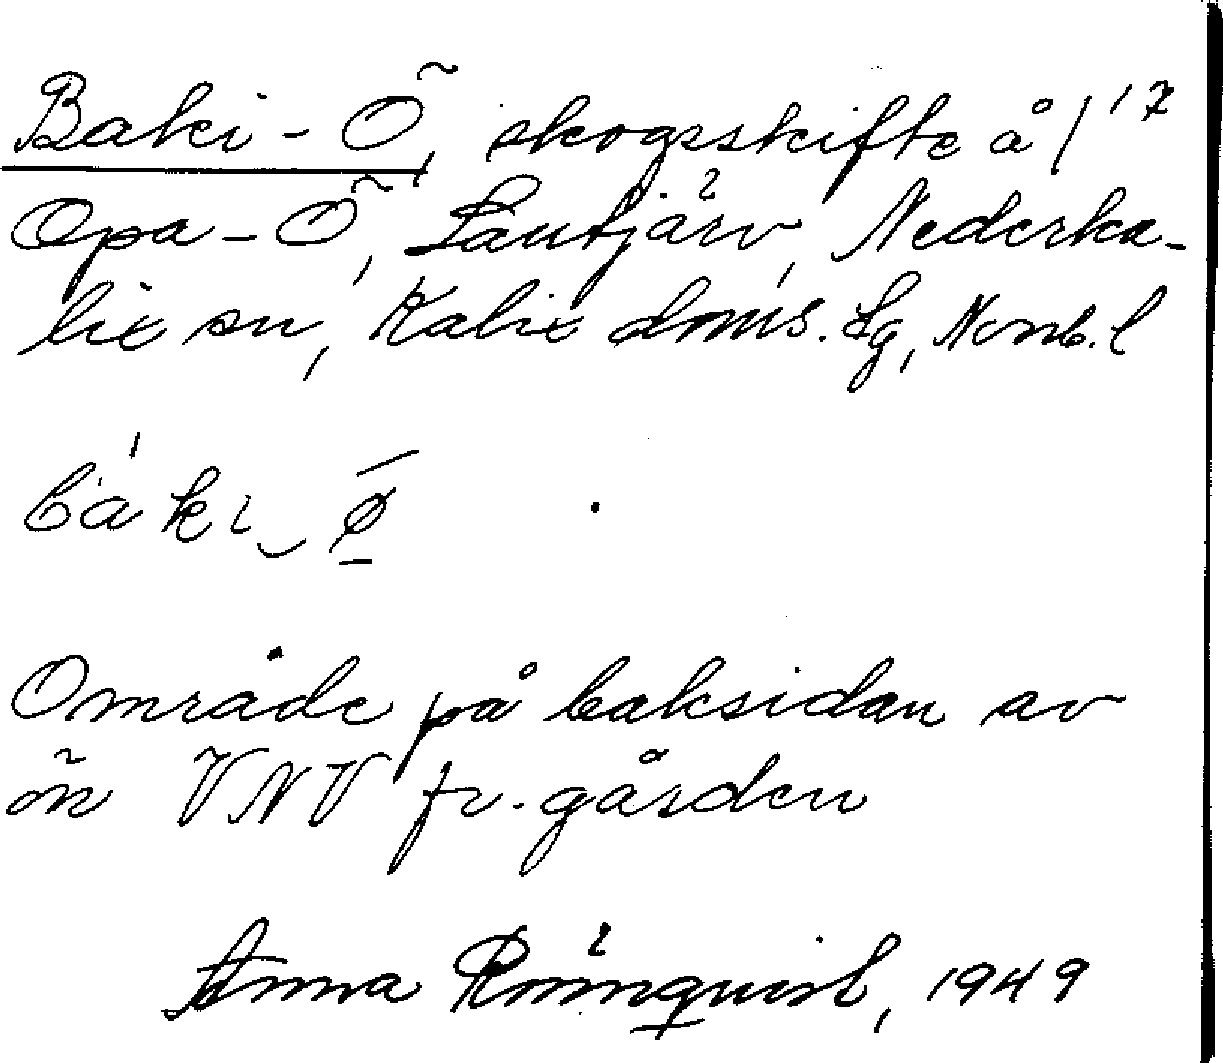 Baki-Ö, skogsskifte å | 17
Opa-Ö, Lantjärv, Nederka-
lix sn, Kalix doms. Lg, Nonb. l
bàki‿ø
Område på baksidan av
ön VNV fr. gården
Anna Rönnquist, 1949